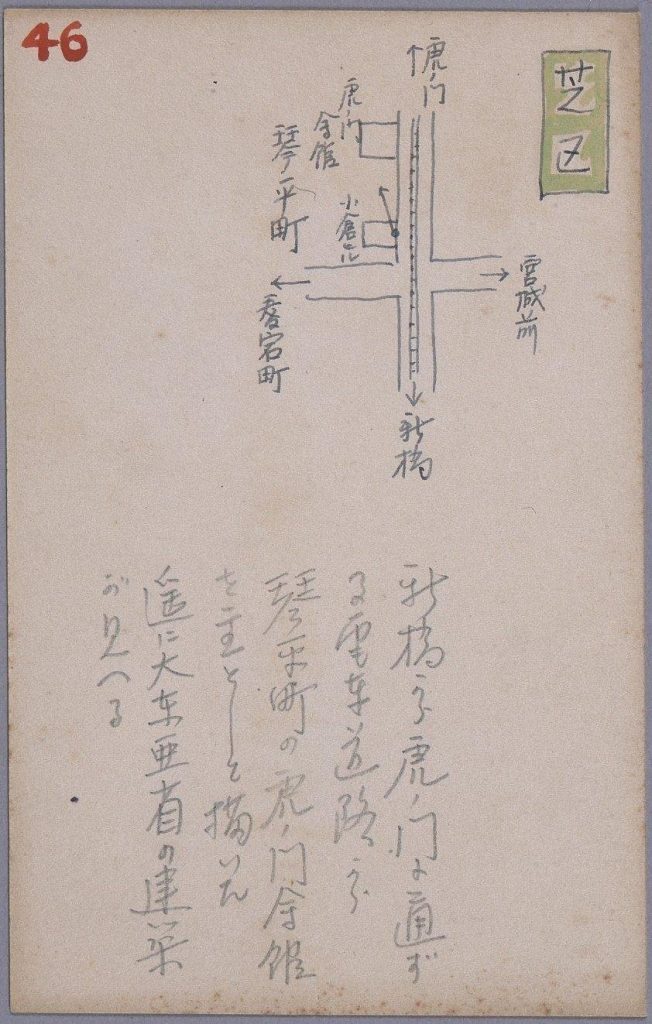 46
芝区
↑虎ノ門
虎ノ門
会館
琴平町
小倉ビル
宮城前
愛宕町
新橋
新橋から虎ノ門に通ず
る電車道路から
琴平町の虎ノ門会館
を主として描いた
遥に大東亜省の建築
が見へる